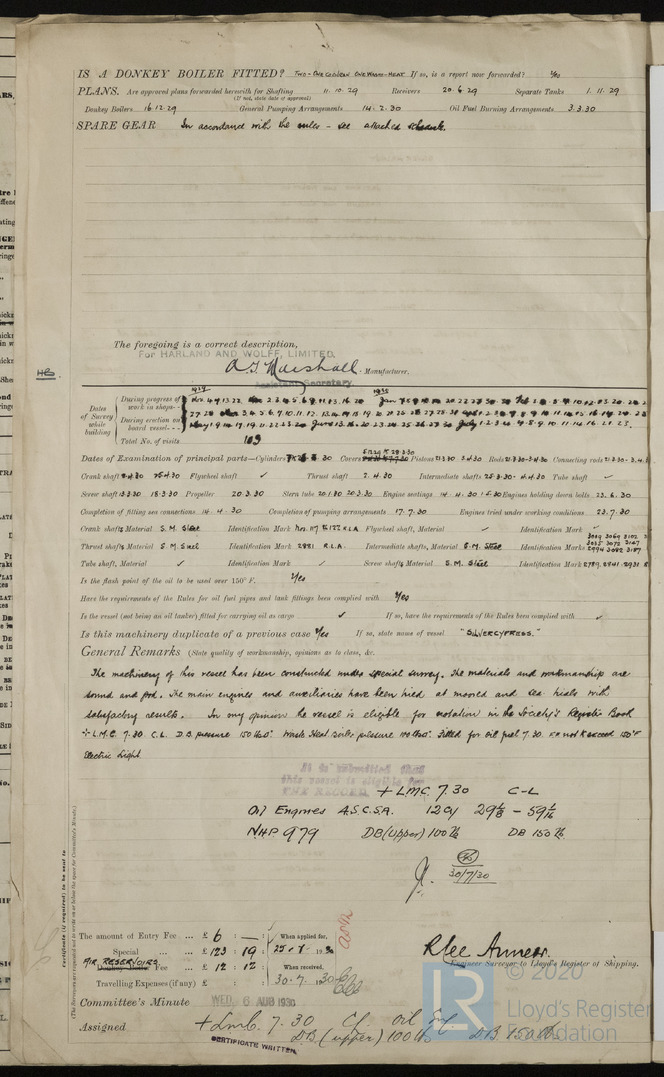 IS A DONKEY BOILER FITTED? Two - One Cochran One Waste-Heat If so, is a report now forwarded? Yes
PLANS. Are approved plans forwarded herewith for Shafting 11.10.29 Receivers 20.6.29 Separate Tanks 1.11.29
(If not, state date of approval)
Donkey Boilers 16.12.29 General Pumping Arrangements 14.2.30 Oil Fuel Burning Arrangements 3.3.30
SPARE GEAR In accordance with the rules - see attached schedule.
The foregoing is a correct description,
For HARLAND AND WOLFF, LIMITED.
A. T. Marshall Manufacturer.
Assistant Secretary.
HB
Dates of Survey while building
During progress of work in shops - -
During erection on board vessel - - -
Total No. of visits
1929
1930
Dates of Examination of principal parts—Cylinders Covers Pistons Rods Connecting rods
Crank shaft Flywheel shaft ✓ Thrust shaft 2.4.30 Intermediate shafts 25.3.30 - 4.4.30 Tube shaft ✓
Screw shaft 18.3.30 Propeller 20.3.30 Stern tube 20.1.30 20.3.30 Engine seatings 14.4.30 Engines holding down bolts 23.6.30
Completion of fitting sea connections 14.4.30 Completion of pumping arrangements 17.7.30 Engines tried under working conditions 23.7.30
Crank shafts Material S.M. Steel Identification Mark R.L.A. Flywheel shaft, Material ✓ Identification Mark ✓
Thrust shafts Material S.M. Steel Identification Mark 2981 R.L.A. Intermediate shafts, Material S.M. Steel Identification Marks
Tube shaft, Material ✓ Identification Mark ✓ Screw shafts Material S.M. Steel Identification Mark 2789. 2941. 2931
Is the flash point of the oil to be used over 150° F. Yes
Have the requirements of the Rules for oil fuel pipes and tank fittings been complied with Yes
Is the vessel (not being an oil tanker) fitted for carrying oil as cargo ✓ If so, have the requirements of the Rules been complied with ✓
Is this machinery duplicate of a previous case Yes If so, state name of vessel "SILVERCYPRESS."
General Remarks (State quality of workmanship, opinions as to class, &c.
The machinery of this vessel has been constructed under special survey. The materials and workmanship are
sound and good. The main engines and auxiliaries have been tried at moored and sea trials with
satisfactory results. In my opinion the vessel is eligible for notation in the Society's Register Book
+ L.M.C. 7.30 C.L. D.B. pressure 150 lbs□". Waste Heat Boiler pressure 100 lbs□". Fitted for oil fuel 7.30. F.P. not to exceed 150°F
Electric Light.
It is submitted that
this vessel is eligible for
THE RECORD. + LMC. 7.30 C-L
Oil Engines 4.S.C.SA. 12cy 29⅛ - 59 1/16
NHP 979 DB (upper) 100 lb DB 150 lb.
30/7/30
The amount of Entry Fee ... £ 6 : — :
Special ... ... £ 123 : 19 :
AIR RESERVOIRS
Donkey Boiler Fee ... £ 12 : 12 :
Travelling Expenses (if any) £ : :
When applied for,
When received,
30.7.1930
R Lee Anness.
Engineer Surveyor to Lloyd's Register of Shipping.
Committee's Minute WED. 6 AUG 1930
Assigned + LMC. 7.30 CL Oil Eng
DB (upper) 100 lb DB 150 lb.
CERTIFICATE WRITTEN
Certificate (if required) to be sent to
(The Surveyors are requested not to write on or below the space for Committee's Minute.)
© 2020
LR
Lloyd's Register
Foundation